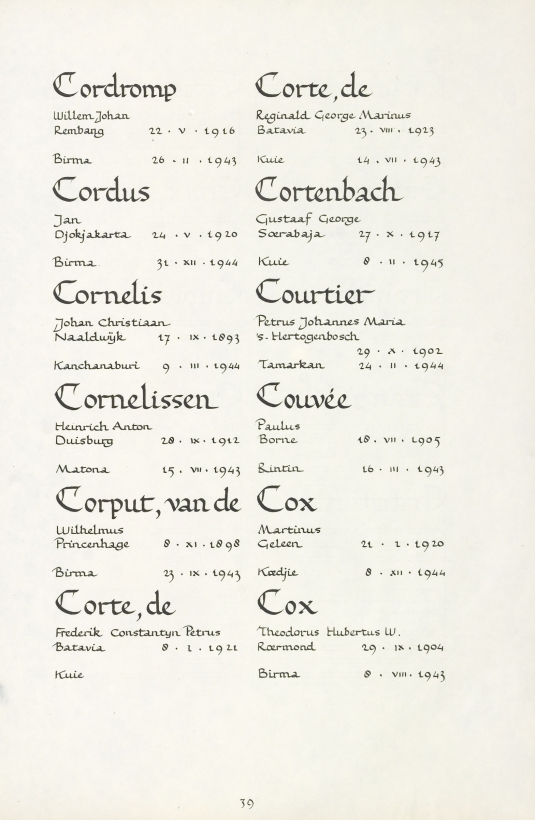 Cordromp
Willem Johan
Rembang 22 · V · 1916
Birma 26 · II · 1943
Cordus
Jan
Djokjakarta 24 · V · 1920
Birma 31 · XII · 1944
Cornelis
Johan Christiaan
Naaldwijk 17 · IX · 1893
Kanchanaburi 9 · III · 1944
Cornelissen
Heinrich Anton
Duisburg 28 · IX · 1912
Matona 15 · VII · 1943
Corput, van de
Wilhelmus
Princenhage 8 · XI · 1898
Birma 23 · IX · 1943
Corte, de
Frederik Constantyn Petrus
Batavia 8 · 1 · 1921
Kuie
Corte, de
Reginald George Marinus
Batavia 23 · VIII · 1923
Kuie 14 · VII · 1943
Cortenbach
Gustaaf George
Soerabaja 27 · X · 1917
Kuie 8 · II · 1945
Courtier
Petrus Johannes Maria
's-Hertogenbosch
29 · X · 1902
Tamarkan 24 · II · 1944
Couvée
Paulus
Borne 18 · VII · 1905
Rintin 16 · III · 1943
Cox
Martinus
Geleen 21 · 1 · 1920
Koedjie 8 · XII · 1944
Cox
Theodorus Hubertus W.
Roermond 29 · IX · 1904
Birma 8 · VIII · 1943
39